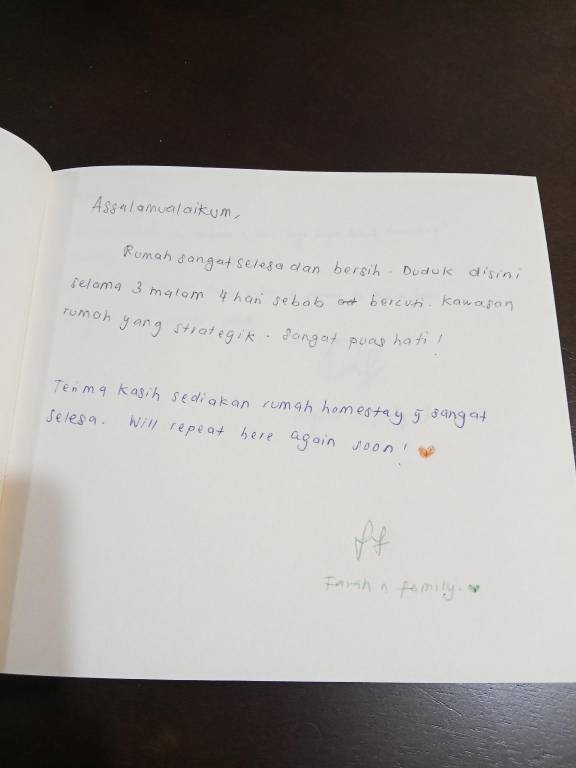 Assalamualaikum,
Rumah sangat selesa dan bersih. Duduk disini
selama 3 malam 4 hari sebab bercuti. Kawasan
rumah yang strategik. Sangat puas hati!
Terima kasih sediakan rumah homestay yg sangat
selesa. Will repeat here again soon!
Farah n family.